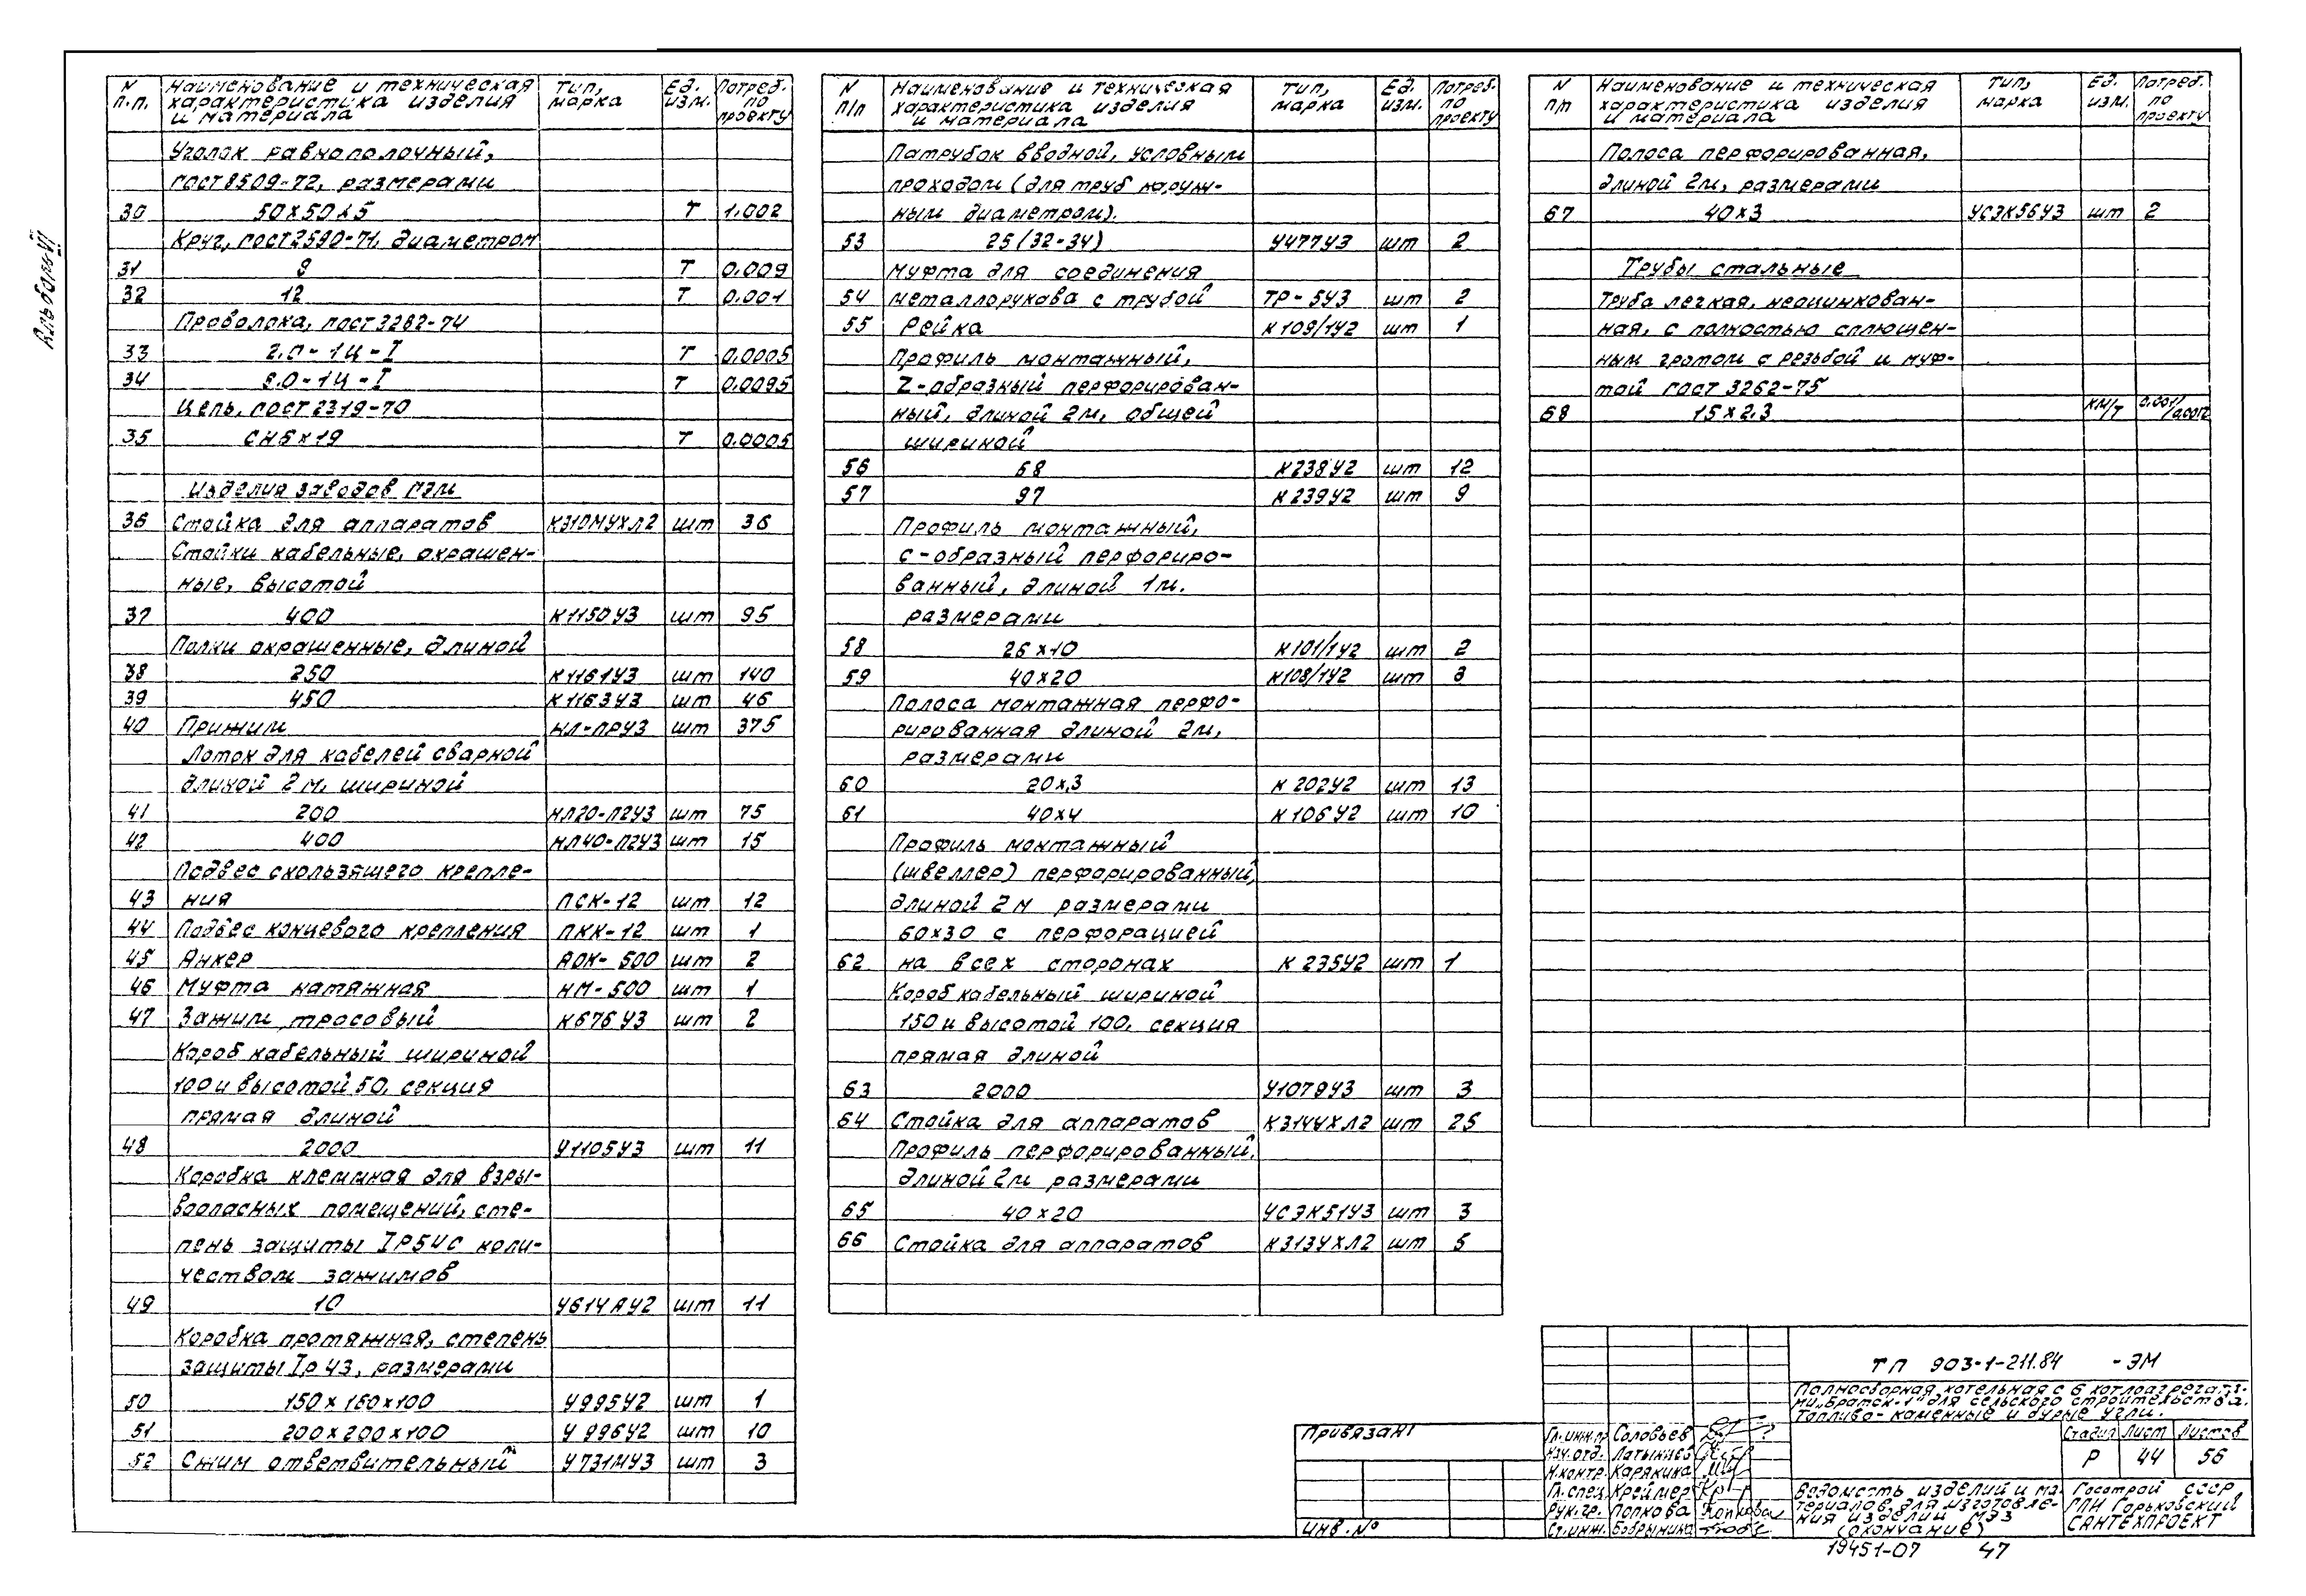 Альбом VI
N п.п. Наименование и техническая характеристика изделия и материала Тип, марка Ед. изм. Потреб. по проекту
Уголок равнополочный,
ГОСТ 8509-72, размерами
30 50х50х5 Т 1.002
Круг, ГОСТ 2590-71, диаметром
31 8 Т 0.009
32 12 Т 0.001
Проволока, ГОСТ 3282-74
33 2.0-1Ц-I Т 0.0005
34 6.0-1Ц-I Т 0.0095
Цепь, ГОСТ 2319-70
35 СН6х19 Т 0.0005
Изделия заводов МЭМ
36 Стойка для аппаратов К310МУХЛ2 шт 36
Стойки кабельные, окрашен-
ные, высотой
37 400 К1150У3 шт 95
Полки окрашенные, длиной
38 250 К1161У3 шт 140
39 450 К1163У3 шт 46
40 Прижим НЛ-ПРУ3 шт 375
Лоток для кабелей сварной
длиной 2м, шириной
41 200 НЛ20-П2У3 шт 75
42 400 НЛ40-П2У3 шт 15
Подвес скользящего крепле-
43 ния ПСК-12 шт 12
44 Подвес концевого крепления ПКК-12 шт 1
45 Анкер АОК-500 шт 2
46 Муфта натяжная НМ-500 шт 1
47 Зажим тросовый К676У3 шт 2
Короб кабельный шириной
100 и высотой 50, секция
прямая длиной
48 2000 У1105У3 шт 11
Коробка клеммная для взры-
воопасных помещений, сте-
пень защиты IP54 с коли-
чеством зажимов
49 10 У614АУ2 шт 11
Коробка протяжная, степень
защиты IP43, размерами
50 150х150х100 У995У2 шт 1
51 200х200х100 У996У2 шт 10
52 Сжим ответвительный У731МУ3 шт 3
N п/п Наименование и техническая характеристика изделия и материала Тип, марка Ед. изм. Потреб. по проекту
Патрубок вводной, условным
проходом (для труб наруж-
ным диаметром).
53 25 (32-34) У477У3 шт 2
Муфта для соединения
54 металлорукова с трубой ТР-5У3 шт 2
55 Рейка К109/1У2 шт 1
Профиль монтажный,
Z-образный перфорирован-
ный, длиной 2м, общей
шириной
56 68 К238У2 шт 12
57 97 К239У2 шт 9
Профиль монтажный,
С-образный перфориро-
ванный, длиной 1м.
размерами
58 26х10 К101/1У2 шт 2
59 40х20 К108/1У2 шт 3
Полоса монтажная перфо-
рированная длиной 2м,
размерами
60 20х3 К202У2 шт 13
61 40х4 К106У2 шт 10
Профиль монтажный
(швеллер) перфорированный,
длиной 2м размерами
60х30 с перфорацией
62 на всех сторонах К235У2 шт 1
Короб кабельный шириной
150 и высотой 100, секция
прямая длиной
63 2000 У1079У3 шт 3
64 Стойка для аппаратов К314УХЛ2 шт 25
Профиль перфорированный,
длиной 2м размерами
65 40х20 УСЭК51У3 шт 3
66 Стойка для аппаратов К313УХЛ2 шт 5
N п/п Наименование и техническая характеристика изделия и материала Тип, марка Ед. изм. Потреб. по проекту
Полоса перфорированная,
длиной 2м, размерами
67 40х3 УСЭК56У3 шт 2
Трубы стальные
Труба легкая, неоцинкован-
ная, с полностью сплющен-
ным гратом с резьбой и муф-
той ГОСТ 3262-75
68 15х2.3 км/т 0.001/0.0012
ТП 903-1-211.84 -ЭМ
Полносборная котельная с 6 котлоагрегата-
ми "Братск-1" для сельского строительства.
Топливо-каменные и бурые угли.
Привязан
Инв. №
Гл.инж.пр Соловьев
Нач.отд. Латынцев
Н.контр. Карякина
Гл.спец. Креймер
Рук.гр. Попкова
Ст.инж. Бобрынина
Стадия Лист Листов
Р 44 56
Ведомость изделий и ма-
териалов для изготовле-
ния изделий МЭЗ
(окончание)
Госстрой СССР
ГПИ Горьковский
САНТЕХПРОЕКТ
19451-07 47